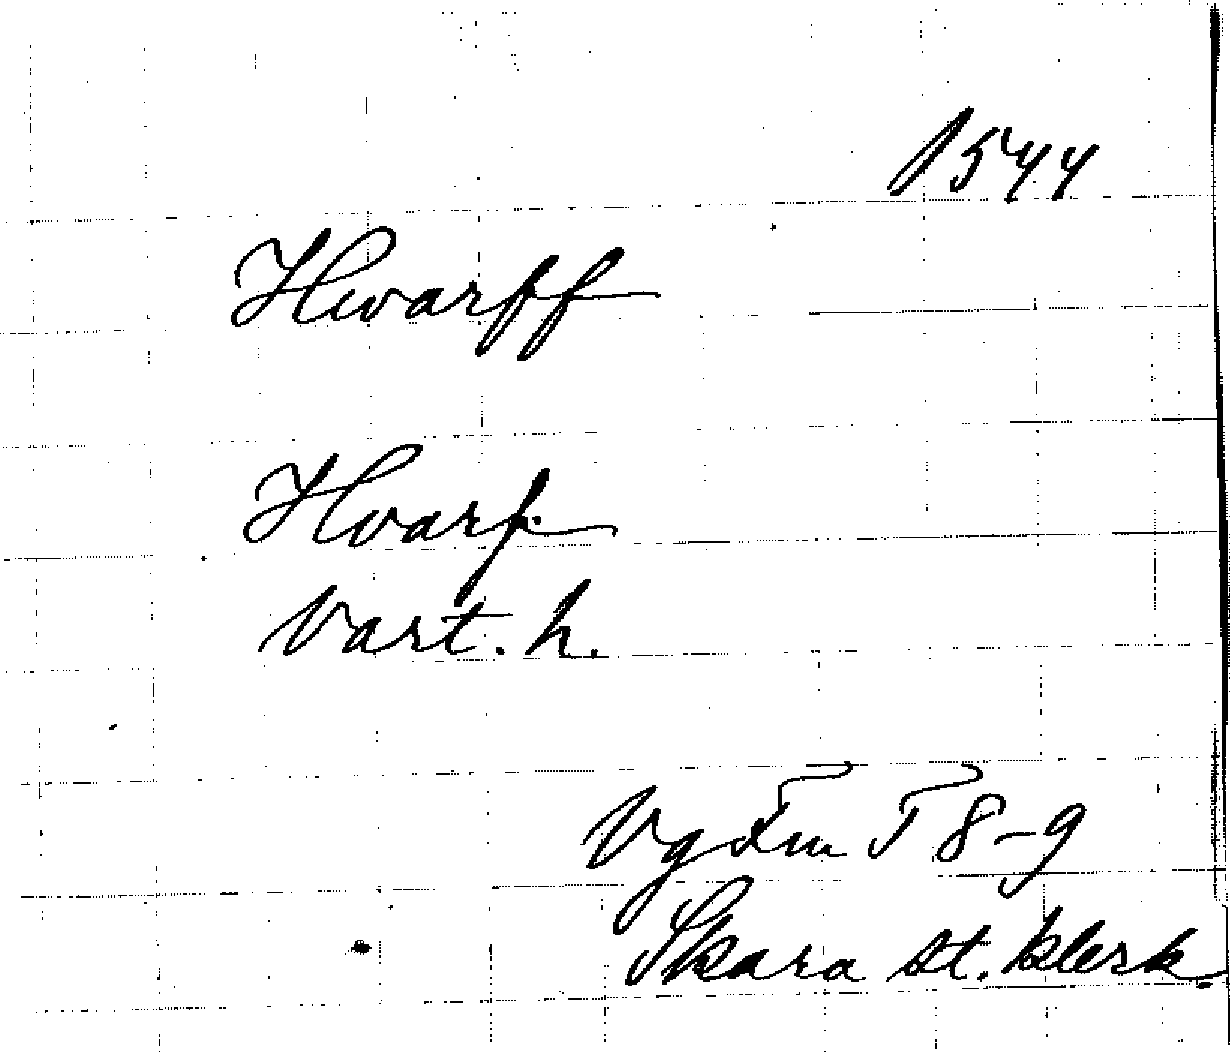 1544
Hwarff
Hvarf
Vart. h.
Vg Fm F 8-9
Skara st. klerk.